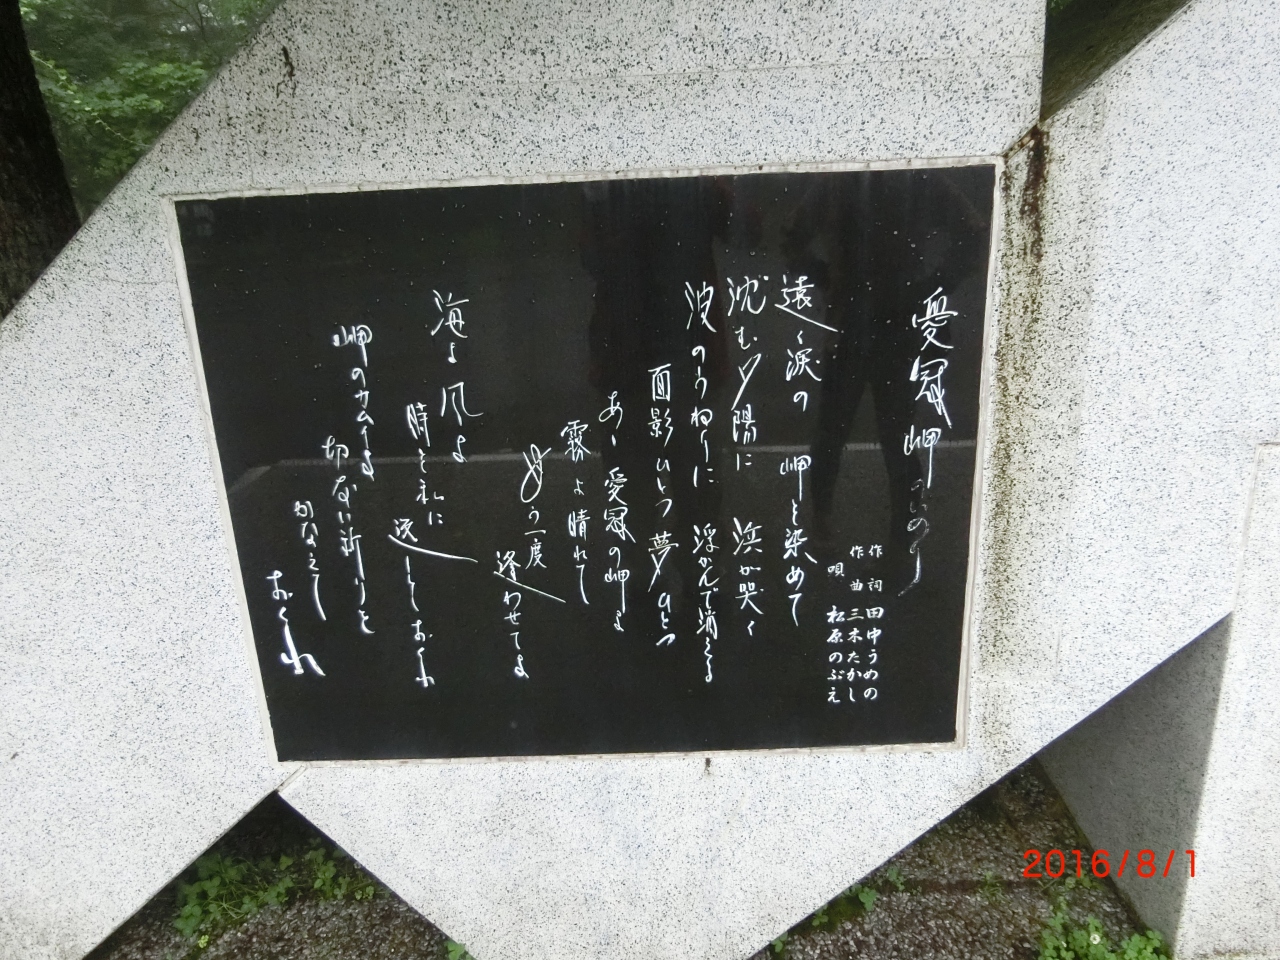 愛冠岬
作詞 田中うめの
作曲 三木たかし
唄 松原のぶえ
遠く涙の 岬を染めて
沈む夕陽に 浜が哭く
波のうねりに 浮かんで消える
面影ひとつ 夢ひとつ
あゝ 愛冠の岬よ
霧よ晴れて
もう一度
逢わせてよ
海よ風よ
時を私に
戻しておくれ
岬のカムイよ
切ない祈りを
かなえて
おくれ
2016/8/1